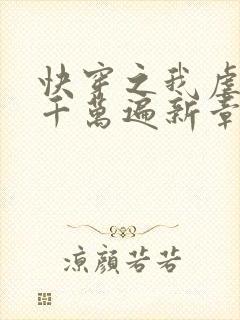 快穿之我虐
千萬遍新章
涼顔若若